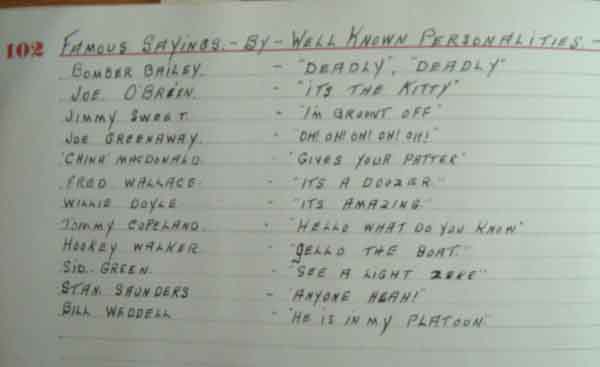 102 FAMOUS SAYINGS. - BY - WELL KNOWN PERSONALITIES -
BOMBER BAILEY. - "DEADLY", "DEADLY"
JOE O'BRIEN. - "ITS THE KITTY"
JIMMY SWEET. - "I'M BROWNT OFF"
JOE GREENAWAY. - "OH! OH! OH! OH! OH!"
'CHINA' MACDONALD. - "GIVES YOUR PATTER"
FRED WALLACE. - "ITS A DOOZER."
WILLIE DOYLE - "ITS AMAZING."
TOMMY COPELAND. - "HELLO WHAT DO YOU KNOW"
HOOKEY WALKER - "GELLO THE BOAT."
SID. GREEN. - "SEE A LIGHT"
STAN. SAUNDERS - "ANYONE HEAH!"
BILL WEDDELL - "HE IS IN MY PLATOON"